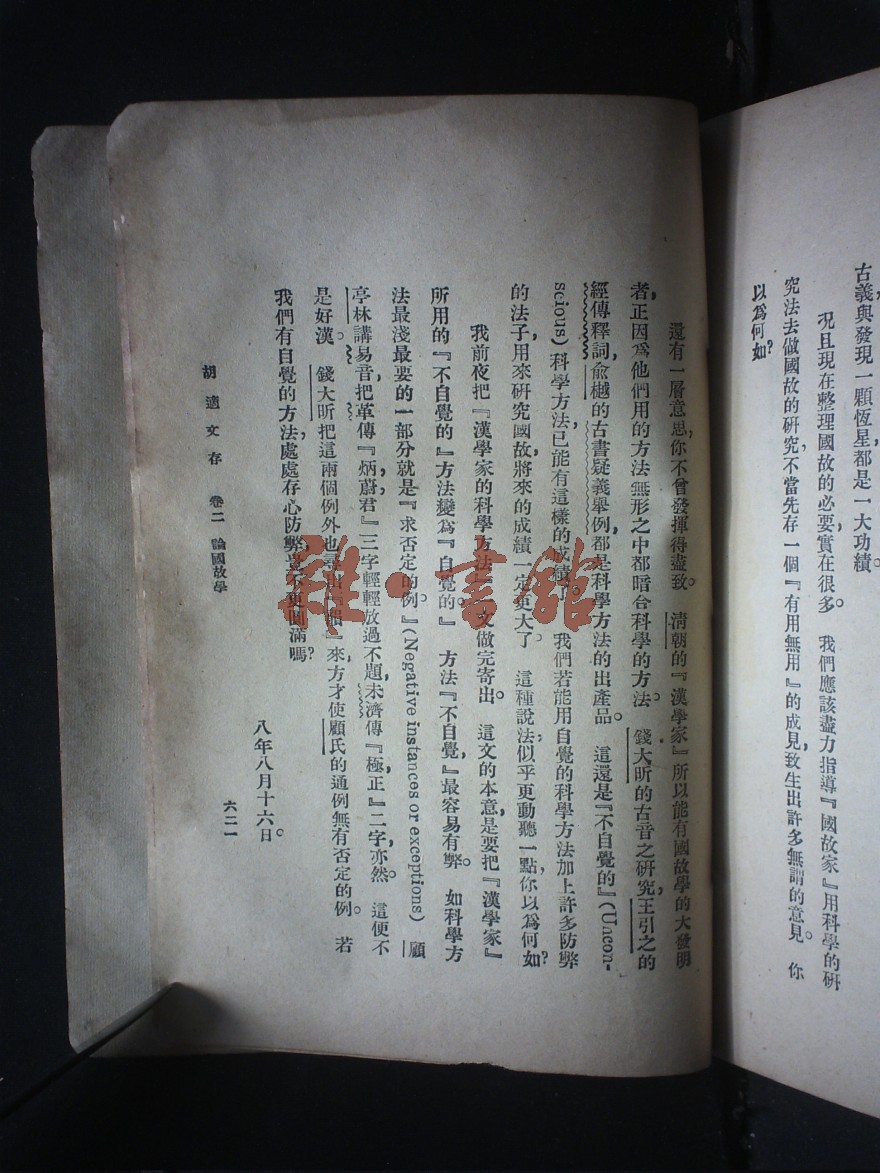 古義與發現一顆恆星,都是一大功績。
況且現在整理國故的必要,實在很多。我們應該盡力指導『國故家』用科學的研
究法去做國故的研究,不當先存一個『有用無用』的成見,致生出許多無謂的意見。你
以爲何如?
還有一層意思,你不曾發揮得盡致。清朝的『漢學家』所以能有國故學的大發明
者,正因爲他們用的方法無形之中都暗合科學的方法。錢大昕的古音之研究,王引之的
經傳釋詞,俞樾的古書疑義舉例,都是科學方法的出產品。這還是『不自覺的』(Uncon-
scious)科學方法,已能有這樣的成績了。我們若能用自覺的科學方法加上許多防弊
的法子,用來研究國故,將來的成績一定更大了。這種說法,似乎更動聽一點,你以爲何如?
我前夜把『漢學家的科學方法』一文做完寄出。這文的本意,是要把『漢學家』
所用的『不自覺的』方法變爲『自覺的。』方法『不自覺』,最容易有弊。如科學方
法最淺最要的一部分就是『求否定的例。』(Negative instances or exceptions)顧
亭林講易音,把革傳『炳,蔚,君』三字輕輕放過不題,未濟傳『極,正』二字,亦然。這便不
是好漢。錢大昕把這兩個例外也尋出『韻』來,方才使顧氏的通例無有否定的例。若
我們有自覺的方法,處處存心防弊,豈不更圓滿嗎?
八年八月十六日。
胡適文存 卷二 論國故學
六二一
雜·書館